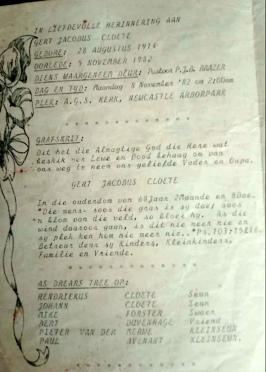 IN LIEFDEVOLLE HERINNERING AAN
GERT JACOBUS CLOETE
GEBORE: 28 AUGUSTUS 1914
OORLEDE: 5 NOVEMBER 1982
DIENS WAARGENEEM DEUR: Pastoor P.J.B.
DAG EN TYD: Maandag 8 November '82 om 2:00nm
PLEK: A.G.S. KERK, NEWCASTLE ARBORPARK
GRAFSKRIF:
Dit het die Almagtige God die Here wat
beskik oor Lewe en Dood behaag om van
ons weg te neem ons geliefde Vader en Oupa.
GERT JACOBUS CLOETE
In die ouderdom van 68Jaar 2Maande en 8Dae.
"Die mens- soos die gras is sy dae, soos
'n blom van die veld, so bloei hy. As die
wind daaroor gaan, is dit nie meer nie en
sy plek ken hom nie meer nie." Ps.103:15&16.
Betreur deur sy Kinders, Kleinkinders,
Familie en Vriende.
AS DRAERS TREE OP:
HENDRIEKUS CLOETE Seun
JOHANN CLOETE Seun
FORSTER Swaer
BERT DUVENHAGE Vriend
PIETER VAN DER MERWE KLEINSEUN
PAUL AVENANT KLEINSEUN.